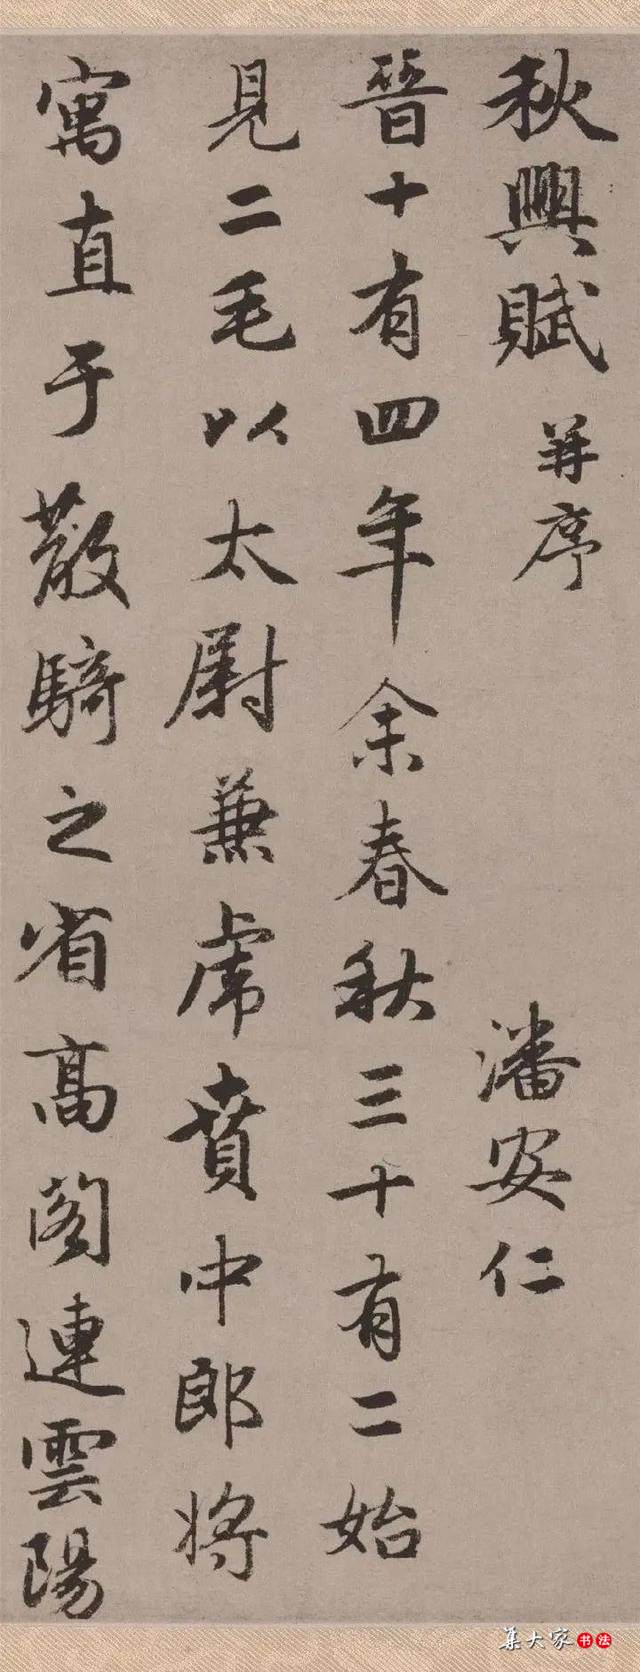 秋興賦 并序 潘安仁
晉十有四年余春秋三十有二始
見二毛以太尉兼虎賁中郎將
寓直于散騎之省高閣連雲陽
集大家书法